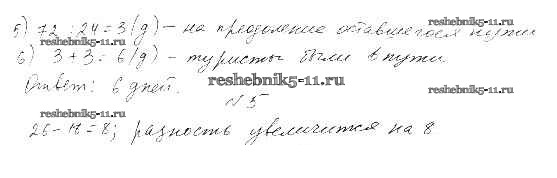 5) 72 : 24 = 3 (д) – на преодоление оставшегося пути
reshebnik5-11.ru
6) 3 + 3 = 6 (д) – туристы были в пути.
reshebnik5-11.ru
Ответ: 6 дней.
reshebnik5-11.ru
№5
reshebnik5-11.ru
reshebnik5-11.ru
26 – 18 = 8; разность увеличится на 8